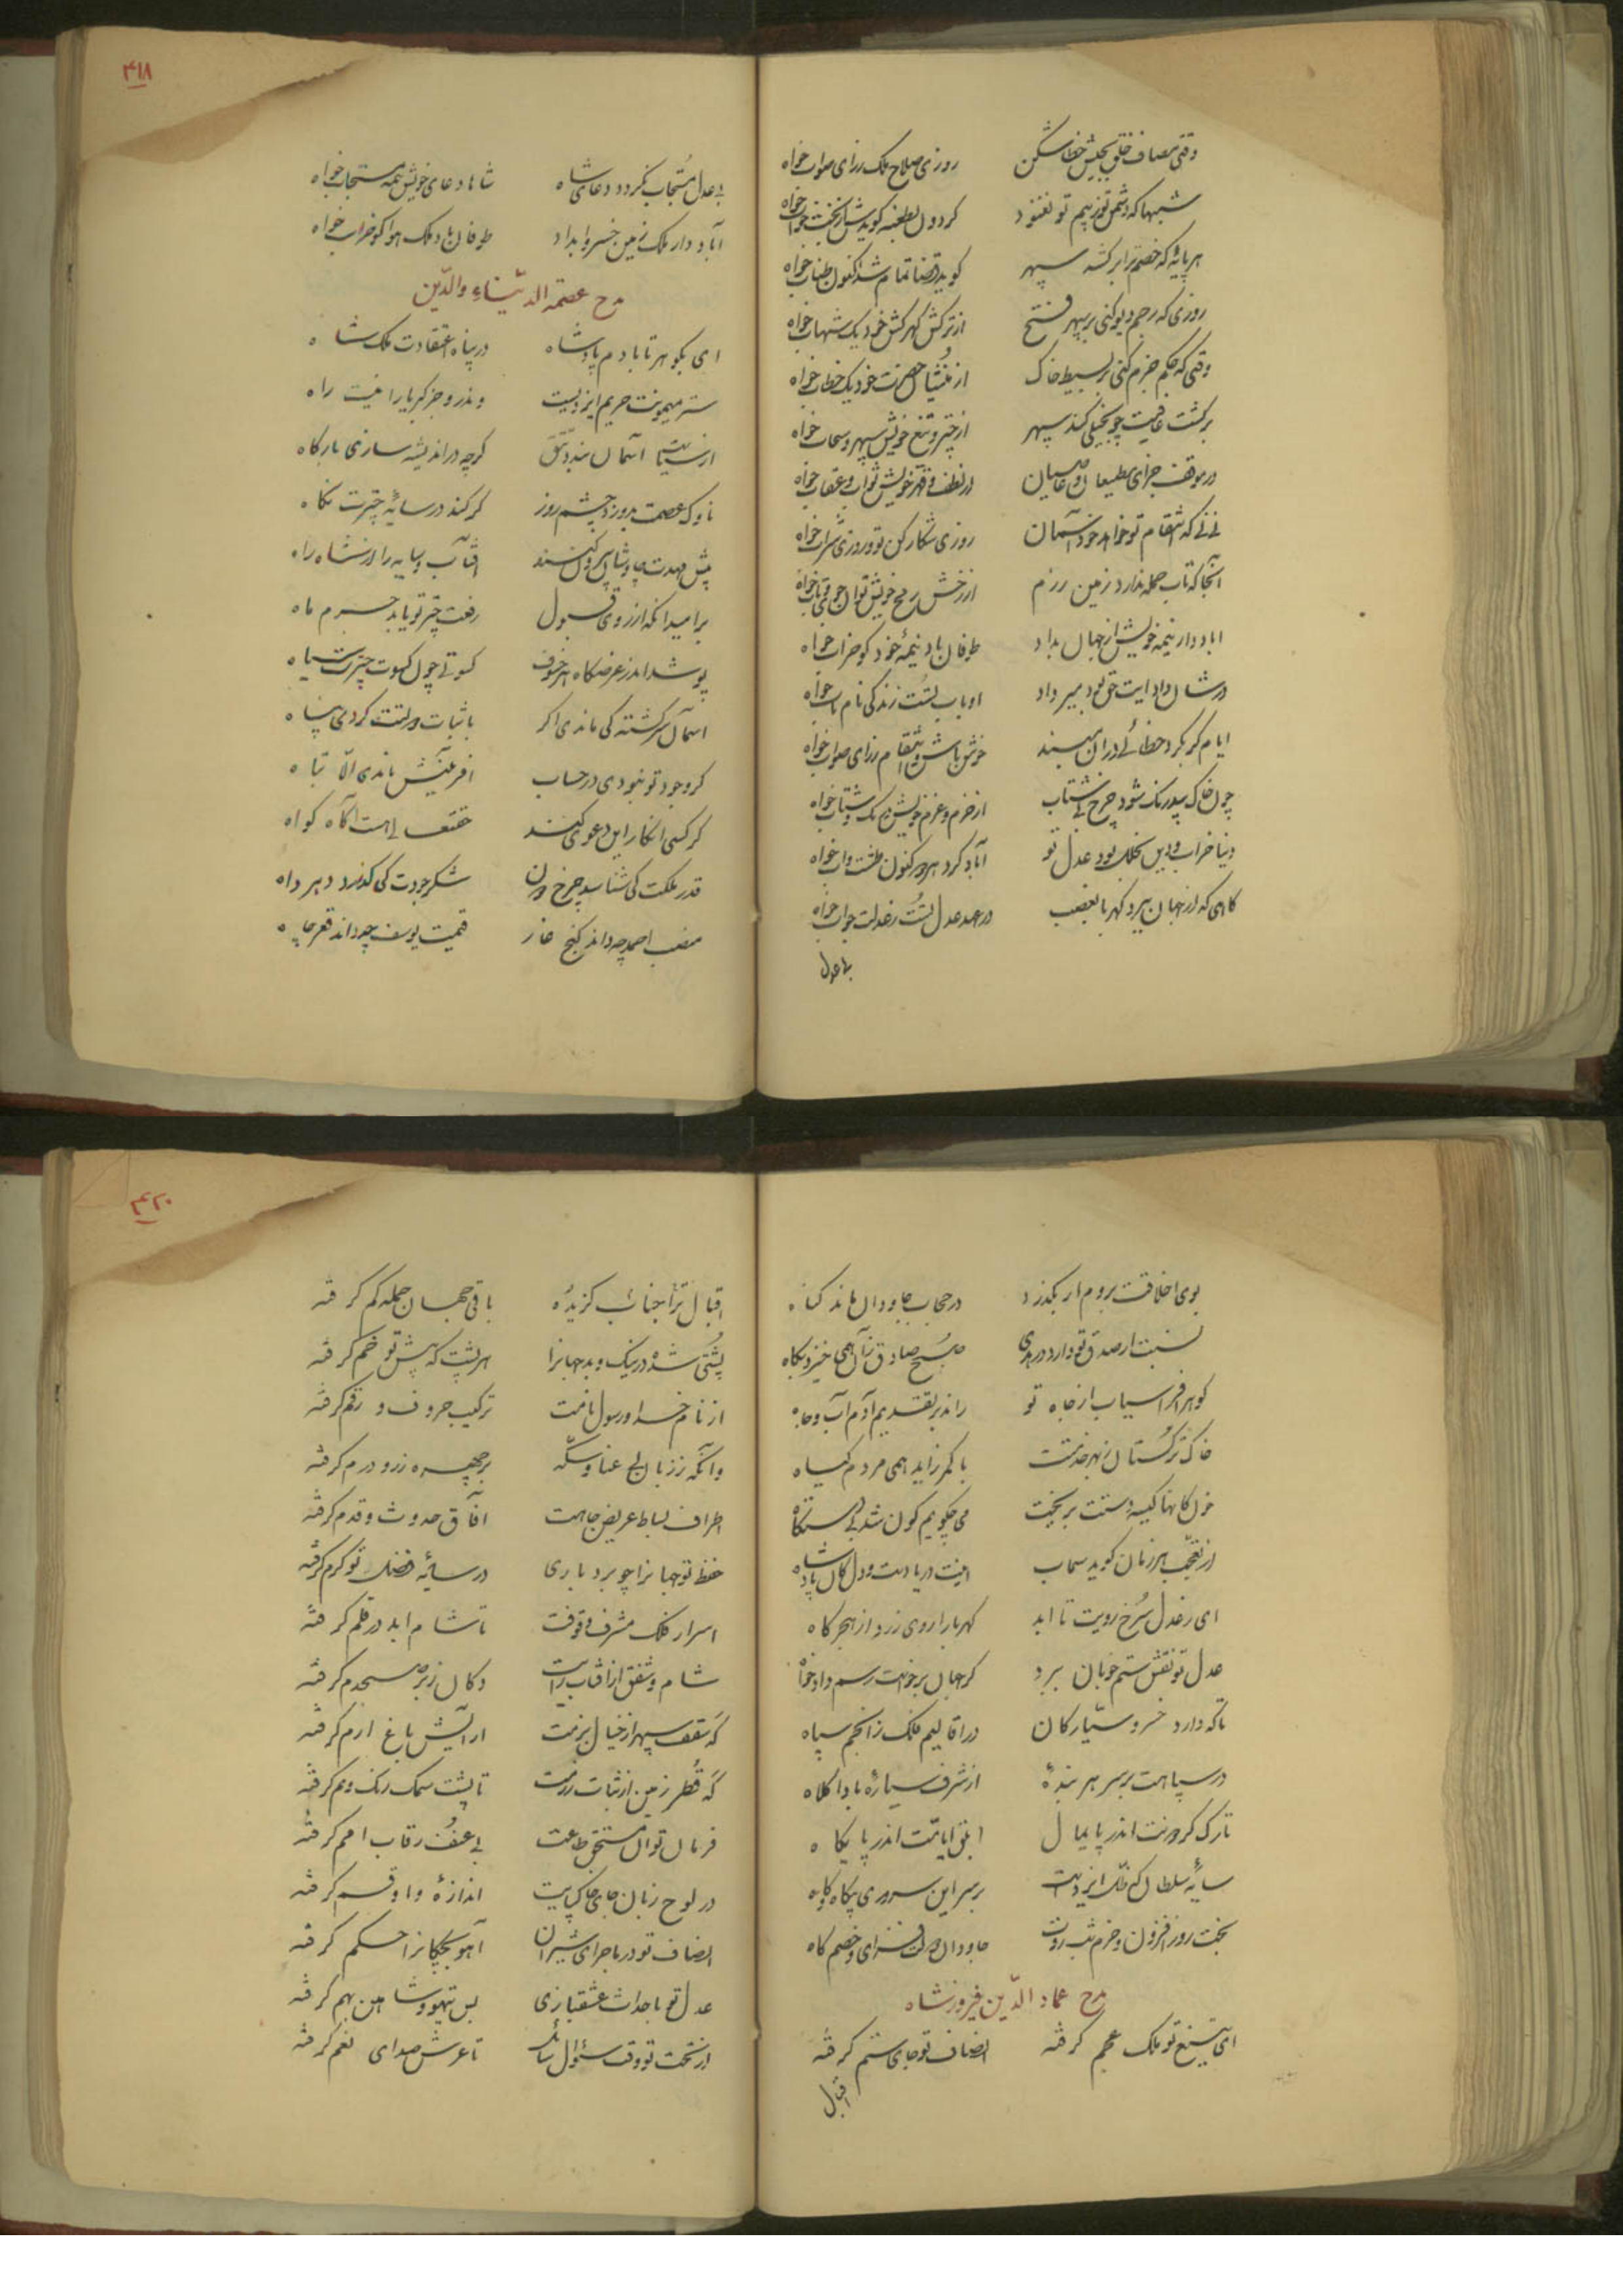 وقتی مصاف خلق بجیش خطا شکن روزی صلاح ملک ز رای صواب خواه
شبها که دشمن تو ز بیم تو نغنود گردون بطعنه گویدش از بخت خواب خواه
هر پایهٔ که خصم ترا برکشد سپهر گوید قضا تمام شد اکنون طناب خواه
روزی که رجم دیو کنی بر سپهر فتح از ترکش گهرکش خود یک شهاب خواه
وقتی که حکم جزم کنی بر بسیط خاک از منشیان حضرت خود یک خطاب خواه
بر کشت عافیت چو بخیلی کند سپهر از چتر و تیغ خویش سپهر و سحاب خواه
در موقف جزای مطیعان و عاصیان از لطف و قهر خویش ثواب و عقاب خواه
نی نی که انتقام تو خواهد خود آسمان روزی شکار کن تو و روزی شراب خواه
آنجا که تاب حمله ندارد زمین رزم از رخش و رمح خویش توان جوی و تاب خواه
اباد دار نیمه خویش از جهان بداد طوفان باد نیمهٔ خود گو خراب خواه
در شان داد ایت حق بود میر داد
ایام گر بکرد خطائی در ان مبند خوش باش و انتقام ز رای صواب خواه
چون خاک بیدرنگ شود چرخ بی شتاب از حزم و عزم خویش درنگ و شتاب خواه
دنیا خراب و دین بخلل بود عدل تو آباد کرد هر دو کنون خشت و اب خواه
کاهی که از جهان ببرد کهربا بغصب در عهد عدل تست ز عدلت جواب خواه
بی عدل
۴۱۸
بی عدل مستجاب نگردد دعای شاه شاها دعای خویش همه مستجاب خواه
آباد دار ملک زمین خسروا بداد طوفان باد ملک هوا گو خراب خواه
مدح عصمة الدنیاء والدّین
ای بگوهر تا بادم پادشاه در پناه اعتقادت ملک شاه
ستر میمونت حریم ایزدیست وندرو جز کبریا را نیست راه
از سیاست آسمان بندد تتق گرچه در اندیشه سازی بارگاه
ناوک عصمت بدوزد چشم روز گر کند در سایهٔ چترت نگاه
پیش مهدت چاوشان بیرون کنند افتاب و سایه را از شاه راه
بر امید انکه از روی قبول رفعت چتر تو یابد جرم ماه
پوشد اندر عرضگاه هر خسوف کسوتی چون کسوت چترت سیاه
اسمان سرگشته کی ماندی اگر با ثبات دولتت کردی پناه
گر وجود تو نبودی در حساب افرینش ناندی الّا تباه
گر کسی انکار این دعوی کند حق تعالی هست آگاه گواه
قدر ملکت کی شناسد چرخ دون شکر جودت کی گذارد دهر داه
منصب احمد چه داند کنج غار قیمت یوسف چه داند قعر چاه
بوی اخلاقت بروم ار بگذرد در حجاب جاودان ماند گناه
نسبت از صدق تو دارد در هدی صبح صادق زان همی خیزد بگاه
گوهر افراسیاب از جاه تو راند بر تقدیم آدم آب و جاه
خاک ترکستان ز بهر خدمتت با کمر زاید همی مردم گیاه
خون کانها کیسهٔ دستت بریخت می چگویم کون شد بی دستگاه
از تعجب هر زمان گوید سحاب اینت دریا دست و دل کان پادشاه
ای ز عدل سرخ رویت تا ابد کهربا را روی زرد از هجر کاه
عدل تو نقش ستم خوبان ببرد کز جهان برخواست رسم دادخواه
تا که دارد خسرو سیّارگان در اقالیم فلک ز انجم سپاه
در سپاهت بر سر هر بندهٔ از شرف سیاره بادا کلاه
تارک گردونت اندر پایمال ابلق ایامت اندر پایگاه
سایهٔ سلطان که ظلّ ایزدیست بر سر این سروری بیگاه و گاه
بخت روز افزون و خرم شب روت جاودان دولت فزای و خصم کاه
مدح عماد الدّین فیروزشاه
ای تیغ تو ملک عجم گرفته انصاف تو جای ستم گرفته
اقبال
۴۲۰
اقبال ترا جناب گزیده باقی جهان جمله کم گرفته
پشتی شده در نیک و بد جهانرا هر پشت که پیش تو خم گرفته
از نام خدا و رسول نامت ترکیب حروف و رقم گرفته
وانگه ز زبان بی عنا و سکّه بر چهره زر و درم گرفته
اطراف بساط عریض جاهت افاق حدوث و قدم گرفته
حفظ تو جهانرا چو برد باری در سایهٔ فضلت تو کرم گرفته
اسرار فلک مشرف وقوفت تا شام ابد در قلم گرفته
شام و شفق از افتاب رایت دکان ز بر صبحدم گرفته
گه سقف سپهر از خیال بزمت ارایش باغ ارم گرفته
گه قطر زمین از ثبات رزمت تا پشت سمک رنگ و نم گرفته
فرمان تو ان مستحق طاعت بی عنف رقاب امم گرفته
در لوح زبان جای چاکپایت اندازهٔ واو قسم گرفته
انصاف تو در ماجرای شیران آهو بچگانرا حکم گرفته
عدل تو باحداث عشقبازی بس تیهو و شاهین بهم گرفته
از تخت تو وقت سئوال سائل تا عرش صدای نعم گرفته